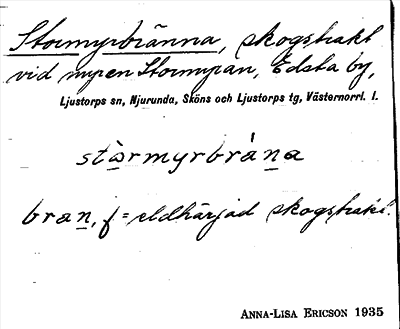 Stormyrbränna, skogstrakt
vid myren Stormyran, Edsta by,
Ljustorps sn, Njurunda, Sköns och Ljustorps tg, Västernorrl. l.
stòrmyrbrána
bran, f = eldhärjad skogstrakt.
ANNA-LISA ERICSON 1935